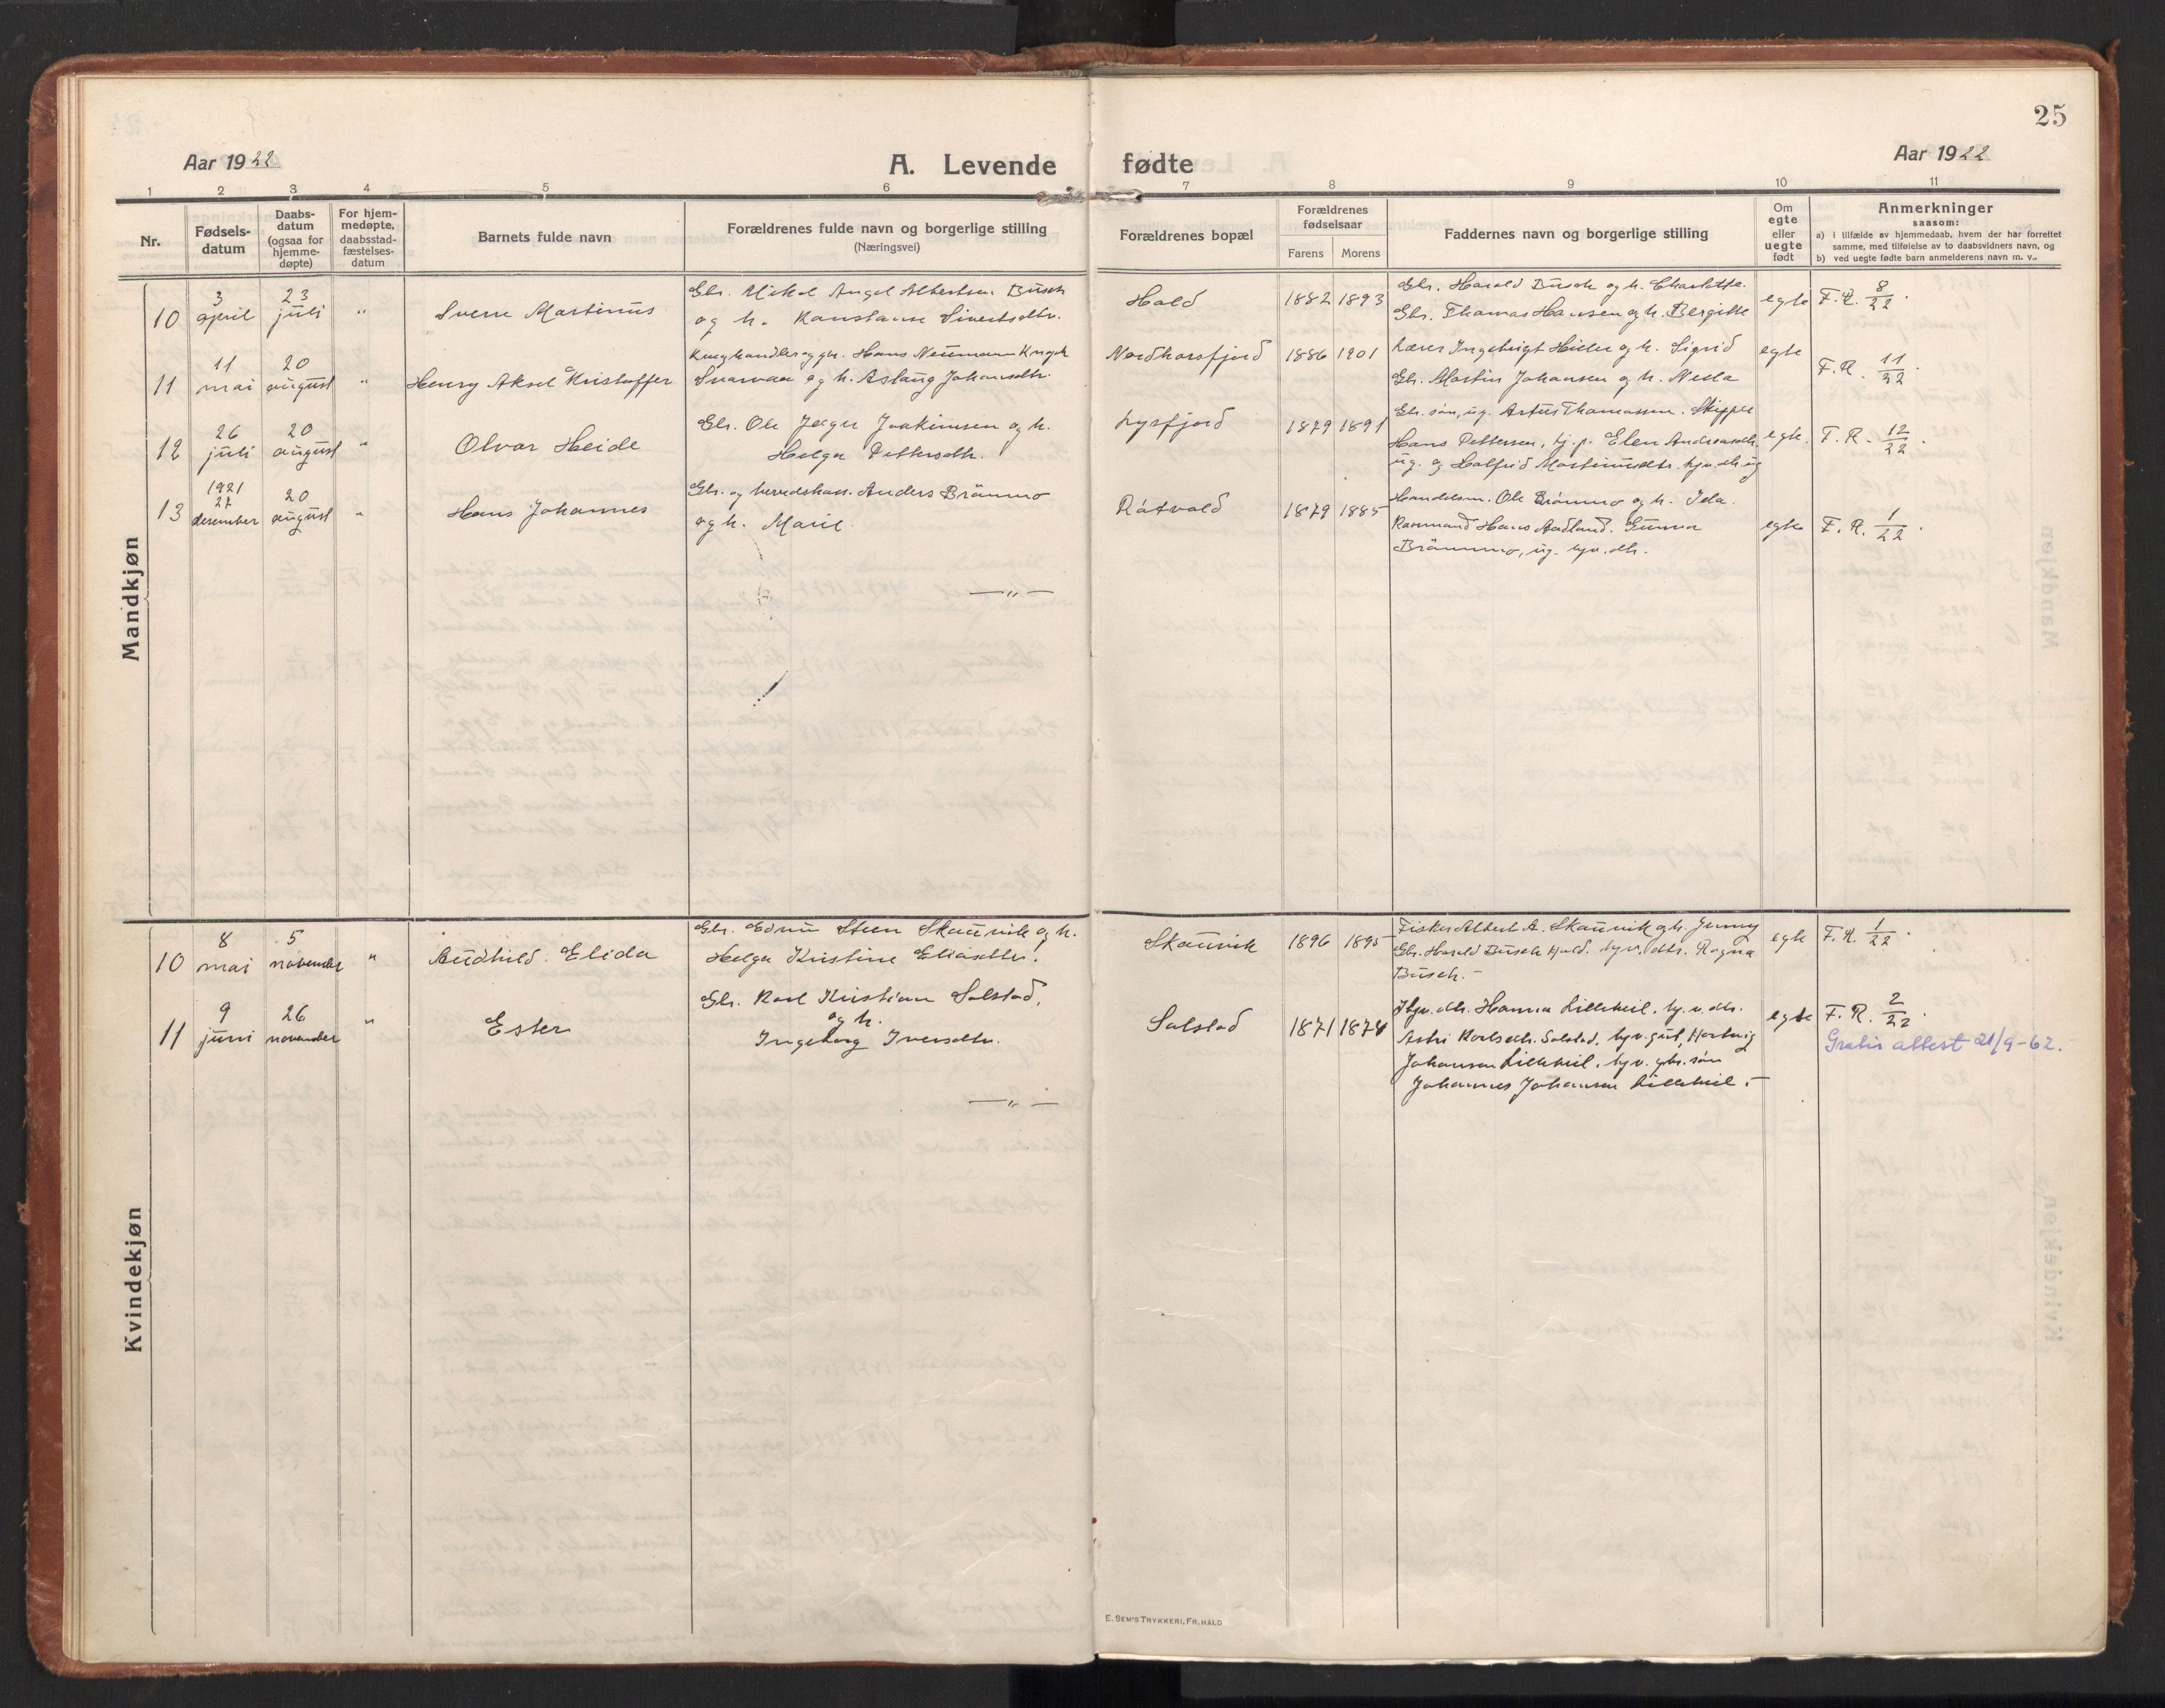 25
Aar 1922
A. Levende fødte
Aar 1922
1 2 3 4 5 6 7 8 9 10 11
Nr.
Fødsels-
datum
Daabs-
datum
(ogsaa for
hjemme-
døpte)
For hjem-
medøpte,
daabsstad-
fæstelses-
datum
Barnets fulde navn
Forældrenes fulde navn og borgerlige stilling
(Næringsvei)
Forældrenes bopæl
Forældrenes
fødselsaar
Farens Morens
Faddernes navn og borgerlige stilling
Om
egte
eller
uegte
født
Anmerkninger
saasom:
a) i tilfælde av hjemmedaab, hvem der har forrettet
samme, med tilføielse av to daabsvidners navn, og
b) ved uegte fødte barn anmelderens navn m. v..
Mandkjøn
10
3
april
23
juli
"
Sverre Martinus
Gbr. Mikal Angel Albertsen Busch
og h. Konstanse Sivertsdtr.
Hald
1882 1893
Gbr. Harald Busch og h. Charlotte.
Gbr. Thomas Hansen og h. Bergitte
egte
F. R. 8/22.
11
11
mai
20
august
"
Henry Aksel Kristoffer
og gbr. Hans Neumann
og h. Aslaug Johansdtr.
Nordhorsfjord
1886 1901
Lærer Ingebrigt og h. Sigrid
Gbr. Martin Johansen og h.
egte
F. R. 11/22.
12
26
juli
20
august
"
Olvar Heide
Gbr. Ole Jæger Joakimsen og h.
Helga Pettersdtr.
Lysfjord
1879 1891
Gbr. søn, ug. Artur Thomassen. Skipper
Hans Pettersen, tj. p. Elen Andreasdtr.
ug. og Halfrid Martinusdtr. hjv. dtr. ug
egte.
F. R. 12/22.
13
1921
27
desember
20
august
"
Hans Johannes
Gbr. og herredskass. Anders Brømmo
og h. Marie.
Råtvold
1879 1885
Handelsm. Ole Brømmo og h. Ida.
Hans Aadland. Gunna
Brømmo, ug. hjv. dtr.
egte
F. R. 1/22.
— " —
Kvindekjøn
10
8
mai
5
november
"
Audhild. Elida
Gbr. Edvin Steen Skaurvik og h.
Helga Kristine Eliasdtr.
Skaurvik
1896 1895
Fisker Albert A. Skaurvik og h. Jenny
Gbr. Harald Busch Hald. hjv. dtr. Ragna
Busch. –
egte
F. R. 1/22.
11
9
juni
26
november
"
Ester
Gbr. Karl Kristian Solstad,
og h.
Ingeborg Iversdtr.
Solstad
1871 1874
Hjv. dtr. Hanna Lilleheil. hj. v. dtr.
Astri Karlsdtr. Solstad, hjv. gut, Hartvig
Johansen Lilleheil, hjv. gbr. søn
Johannes Johansen Lilleheil. –
egte
F. R. 2/22.
Gratis attest 21/9-62.
— " —
E. SEM'S TRYKKERI, FR. HALD